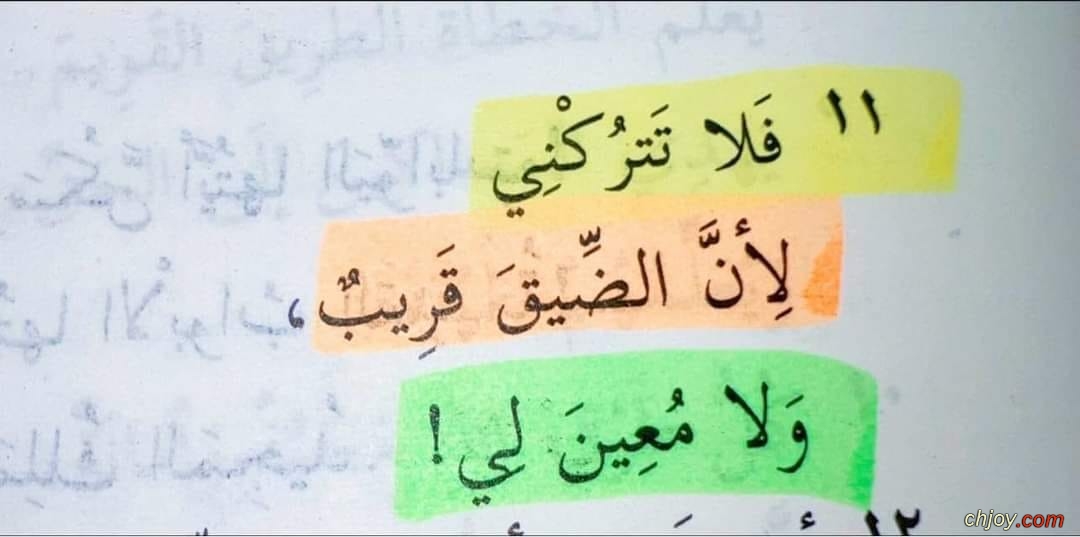 ١١ فَلا تَترُكْنِي
لِأنَّ الضِّيقَ قَرِيبٌ،
وَلا مُعِينَ لِي!
١٢
chjoy.com